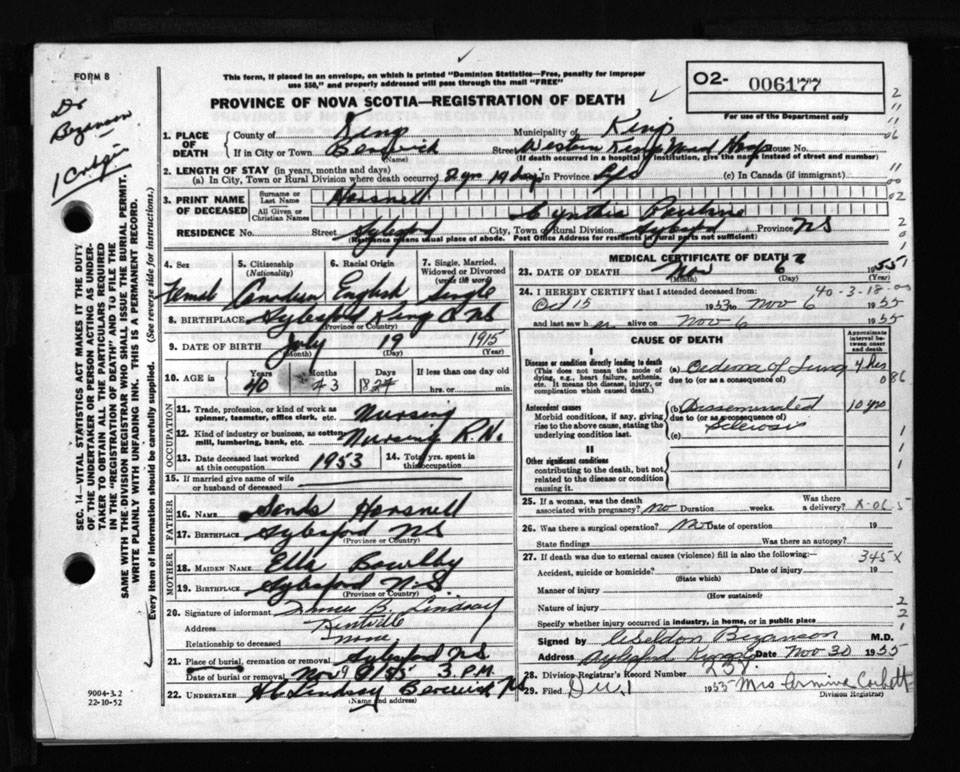 FORM 8
Dr
Bezanson
This form, if placed in an envelope, on which is printed "Dominion Statistics—Free, penalty for improper
use $50," and properly addressed will pass through the mail "FREE"
PROVINCE OF NOVA SCOTIA—REGISTRATION OF DEATH
O2- 006177
For use of the Department only
1. PLACE OF DEATH County of Kings Municipality of Kings
If in City or Town Berwick (Name) Street Western Kings Mem Hosp House No.
(If death occurred in a hospital or institution, give the name instead of street and number)
2. LENGTH OF STAY (in years, months and days)
(a) In City, Town or Rural Division where death occurred 2 yrs 19 days In Province Life (c) In Canada (if immigrant)
3. PRINT NAME OF DECEASED Surname or Last Name Horsnell
All Given or Christian Names Cynthia Pauline
RESIDENCE No. Street Aylesford City, Town or Rural Division Aylesford Province NS
(Residence means usual place of abode. Post Office Address for residents in rural parts not sufficient)
4. Sex 5. Citizenship (Nationality) 6. Racial Origin 7. Single, Married, Widowed or Divorced (write the word)
Female Canadian English Single
8. BIRTHPLACE Aylesford Kings Co NS
(Province or Country)
9. DATE OF BIRTH July 19 1915
(Month) (Day) (Year)
10. AGE in Years Months Days If less than one day
40 3 18 hrs. or min.
OCCUPATION
11. Trade, profession, or kind of work as spinner, teamster, office clerk, etc. Nursing
12. Kind of industry or business, as cotton mill, lumbering, bank, etc. Nursing R.N.
13. Date deceased last worked at this occupation 1953 14. Total yrs. spent in this occupation
15. If married give name of wife or husband of deceased
FATHER
16. NAME Horsnell
17. BIRTHPLACE Aylesford NS
(Province or Country)
MOTHER
18. MAIDEN NAME Ella Bowlby
19. BIRTHPLACE Aylesford N.S.
(Province or Country)
20. Signature of informant B. Lindsay
Address Kentville
Relationship to deceased none
21. Place of burial, cremation or removal Aylesford NS
Date of burial or removal Nov 9 1955 3 P.M.
22. UNDERTAKER H C Lindsay Berwick NS
(Name and address)
9004-3.2
22-10-52
SEC. 14—VITAL STATISTICS ACT MAKES IT THE DUTY
OF THE UNDERTAKER OR PERSON ACTING AS UNDER-
TAKER TO OBTAIN ALL THE PARTICULARS REQUIRED
IN THE "REGISTRATION OF DEATH" AND TO FILE THE
SAME WITH THE DIVISION REGISTRAR WHO SHALL ISSUE THE BURIAL PERMIT.
WRITE PLAINLY WITH UNFADING INK. THIS IS A PERMANENT RECORD.
Every item of information should be carefully supplied. (See reverse side for instructions.)
MEDICAL CERTIFICATE
23. DATE OF DEATH Nov 6 1955
(Month) (Day) (Year)
24. I HEREBY CERTIFY that I attended deceased from: 40-3-18
Oct 15 1953 to Nov 6 1955
and last saw her alive on Nov 6 1955
CAUSE OF DEATH
Approximate interval between onset and death
I
Disease or condition directly leading to death
(This does not mean the mode of dying, e.g., heart failure, asthenia, etc. It means the disease, injury, or complication which caused death.)
(a) Oedema of Lung 4 hrs
due to (or as a consequence of)
Antecedent causes
Morbid conditions, if any, giving rise to the above cause, stating the underlying condition last.
(b) Disseminated 10 yrs
due to (or as a consequence of)
Sclerosis
(c)
II
Other significant conditions
contributing to the death, but not related to the disease or condition causing it.
25. If a woman, was the death associated with pregnancy? no Duration weeks. Was there a delivery?
26. Was there a surgical operation? No Date of operation 19
State findings Was there an autopsy?
27. If death was due to external causes (violence) fill in also the following:— 345 X
Accident, suicide or homicide? (State which) Date of injury 19
Manner of injury (How sustained)
Nature of injury
Specify whether injury occurred in industry, in home, or in public place
Signed by Weldon Bezanson M.D.
Address Aylesford Kings Date Nov 30 1955
28. Division Registrar's Record Number
29. Filed Dec. 1 1955 Mrs Armina Corbett
Division Registrar